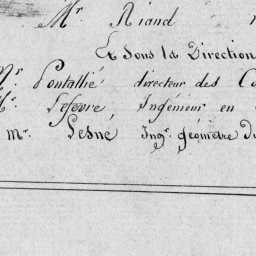 Mr Riand
Et Sous la Direction
Mr. Pontallié directeur des Co
Mr. Lefevre Ingénieur en
Mr. Lesné Ingr. géomètre Du